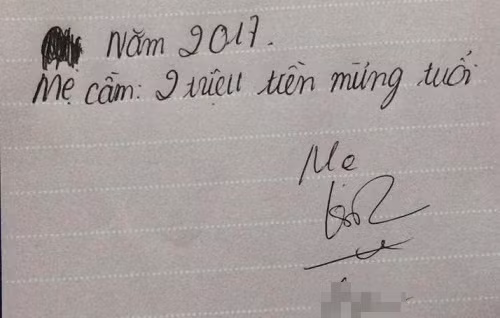 Năm 2017.
Mẹ cầm: 2 triệu tiền mừng tuổi
Mẹ